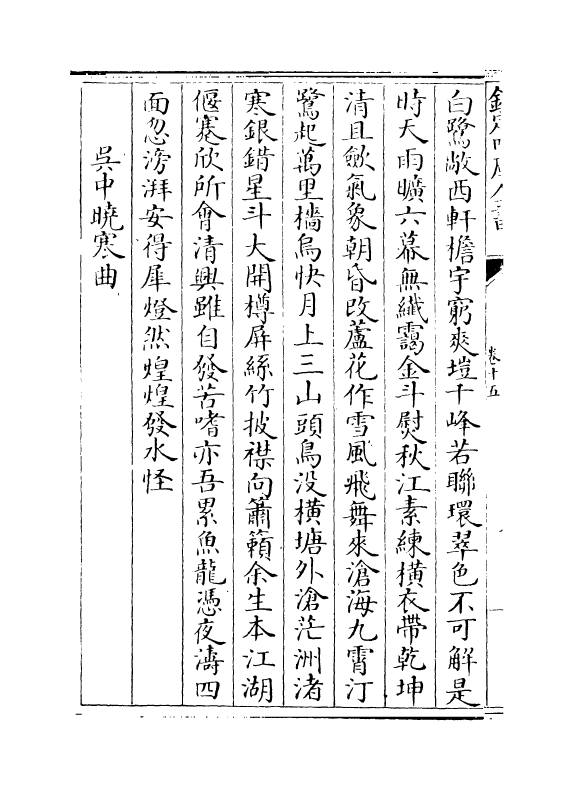 白鷺敞西軒檐宇窮爽塏千峰若聯環翠色不可解是
時天雨曠六幕無纖靄金斗熨秋江素練橫衣帶乾坤
清且歛氣象朝昏改蘆花作雪風飛舞來滄海九霄汀
鷺起萬里檣烏快月上三山頭鳥没橫塘外滄茫洲渚
寒銀錯星斗大開樽屏絲竹披襟向簫籟余生本江湖
偃蹇欣所會清興雖自發苦嗜亦吾累魚龍憑夜濤四
面忽滂湃安得犀燈然煌煌發水怪
吳中曉寒曲
卷十五